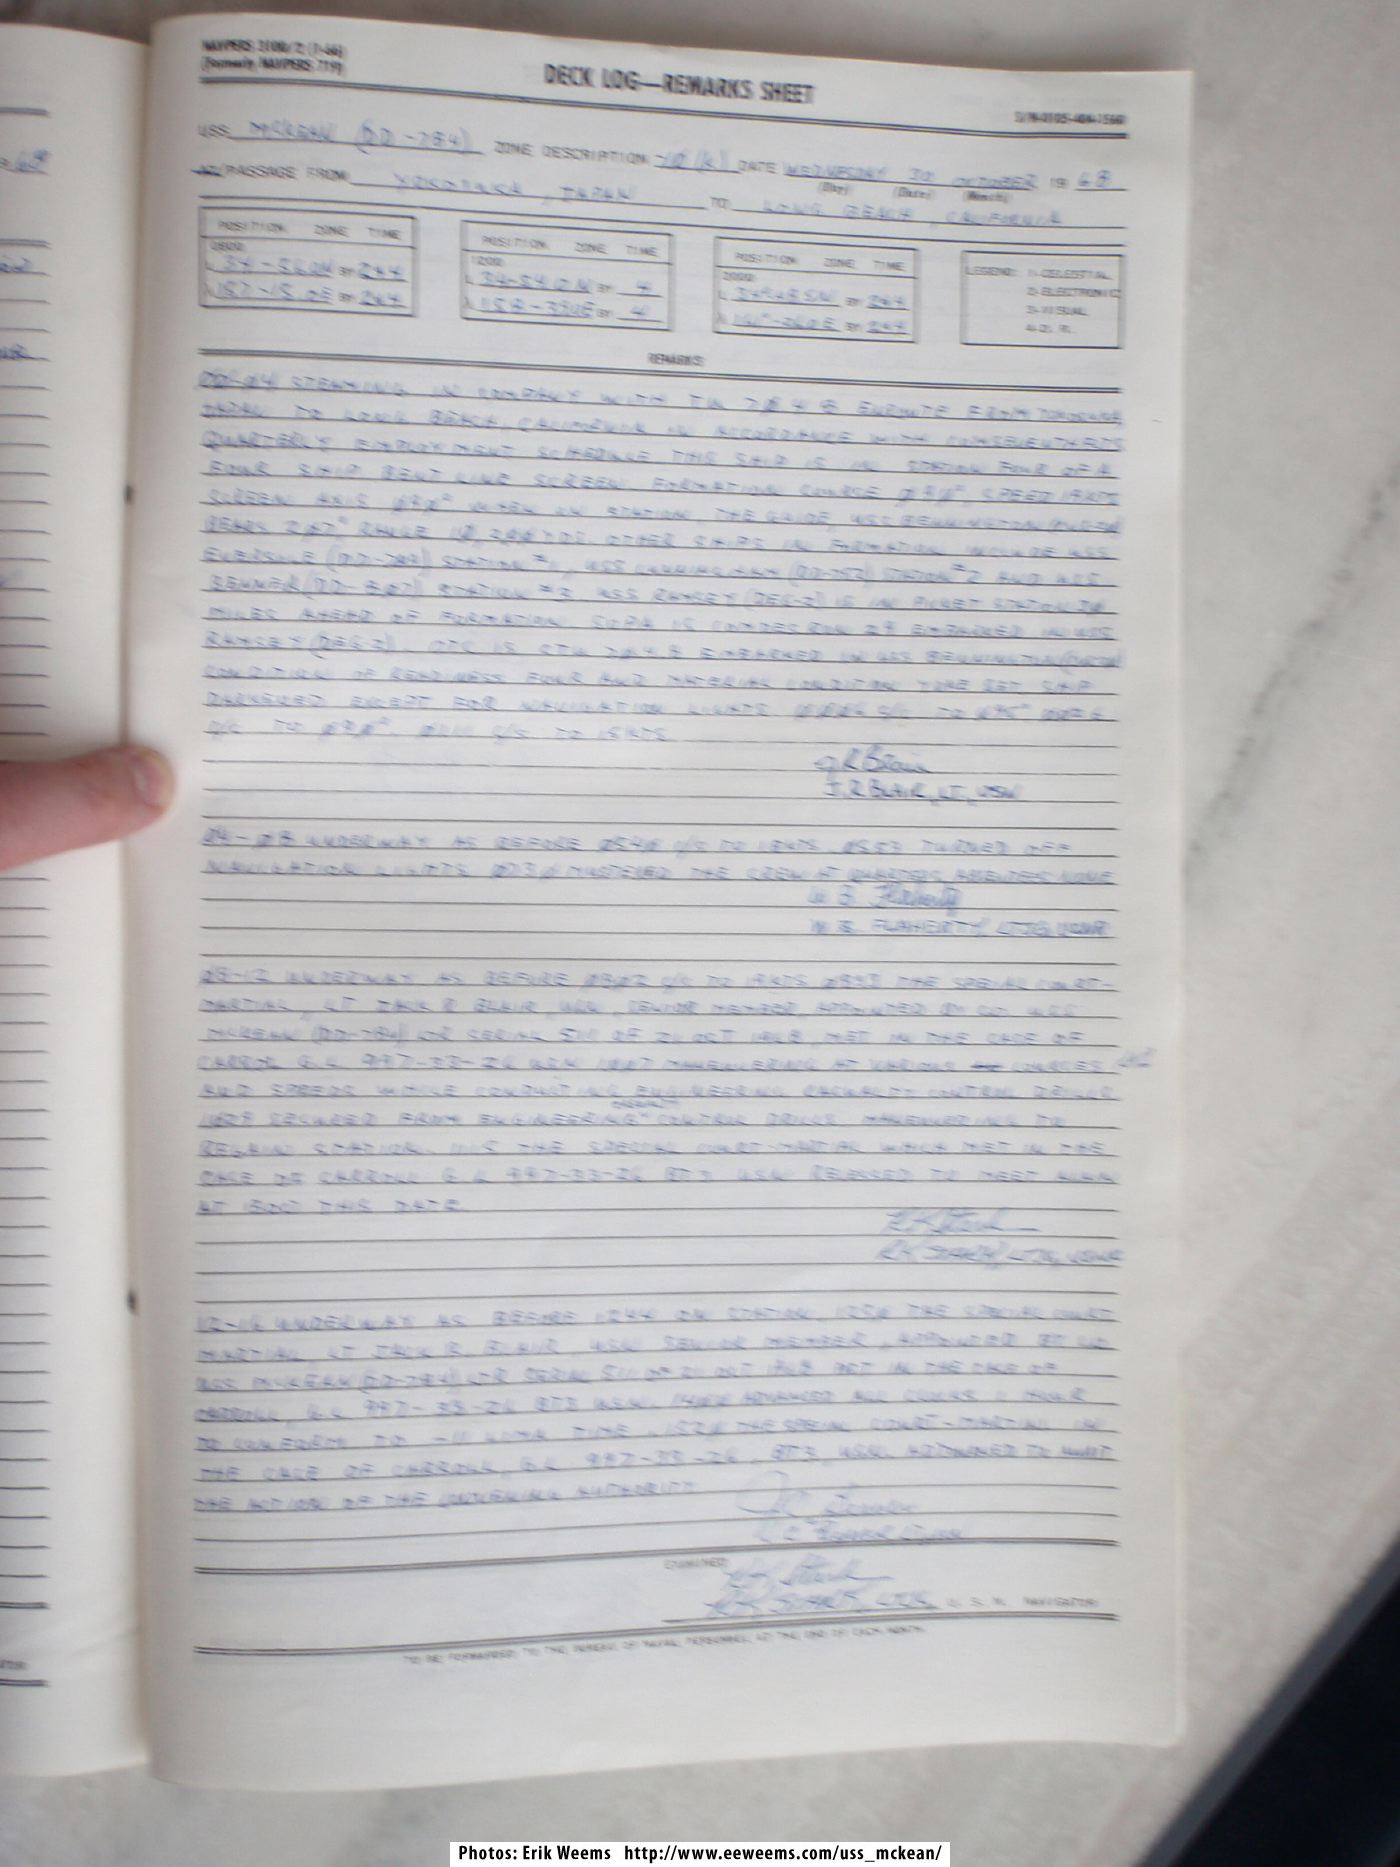 NAVPERS 3100/2 (7-66)
(Formerly NAVPERS 719)
DECK LOG—REMARKS SHEET
S/N-0105-404-1560
USS MCKEAN (DD-784) ZONE DESCRIPTION -10 (K) DATE WEDNESDAY 30 OCTOBER 19 68
(Day) (Date) (Month)
PASSAGE FROM YOKOSUKA, JAPAN TO LONG BEACH, CALIFORNIA
POSITION ZONE TIME
0800
L 34-56.0N BY 2&4
λ 157-15.0E BY 2&4
POSITION ZONE TIME
1200
L BY 4
λ BY 4
POSITION ZONE TIME
2000
L BY 2&4
λ BY 2&4
LEGEND: 1-CELESTIAL
2-ELECTRONIC
3-VISUAL
4-D. R.
REMARKS
00-04 STEAMING IN COMPANY WITH ENROUTE FROM YOKOSUKA
JAPAN TO LONG BEACH, CALIFORNIA IN ACCORDANCE WITH COMSEVENTHFLT'S
QUARTERLY EMPLOYMENT SCHEDULE. THIS SHIP IS IN STATION FOUR OF A
FOUR SHIP BENT LINE SCREEN. FORMATION COURSE 090°, SPEED 15KTS
SCREEN AXIS 090° WHEN ON STATION, THE GUIDE, USS BENNINGTON
BEARS RANGE 10,200YDS. OTHER SHIPS IN FORMATION INCLUDE USS
EVERSOLE (DD-789) STATION #1, USS CUNNINGHAM (DD-752) STATION #2 AND USS
BENNER (DD-807) STATION #3. USS RAMSEY (DEG-2) IS IN PICKET STATION 20
MILES AHEAD OF FORMATION. SOPA IS COMDESRON 29 EMBARKED IN USS
RAMSEY (DEG-2). OTC IS EMBARKED IN USS BENNINGTON
CONDITION OF READINESS FOUR AND MATERIAL CONDITION YOKE SET. SHIP
DARKENED EXCEPT FOR NAVIGATION LIGHTS. C/C TO 095°
C/C TO 090°. 0111 C/S TO 15KTS
J R Blair
J. R. BLAIR, LT, USN
04-08 UNDERWAY AS BEFORE 0540 C/S TO 18KTS. 0553 TURNED OFF
NAVIGATION LIGHTS 0730 MUSTERED THE CREW AT QUARTERS, ABSENTEES: NONE
W B Flaherty
W. B. FLAHERTY, LTJG, USNR
08-12 UNDERWAY AS BEFORE 0802 C/S TO 15KTS THE SPECIAL COURT-
MARTIAL, LT JACK R BLAIR, USN, SENIOR MEMBER, APPOINTED BY CO USS
MCKEAN (DD-784) LTR SERIAL 511 OF 21 OCT 1968, MET IN THE CASE OF
CARROLL G. L 997-33-26 USN 1007 MANEUVERING AT VARIOUS COURSES
AND SPEEDS WHILE CONDUCTING ENGINEERING CASUALTY CONTROL DRILLS
1029 SECURED FROM ENGINEERING CASUALTY CONTROL DRILLS MANEUVERING TO
REGAIN STATION. 1115 THE SPECIAL COURT-MARTIAL WHICH MET IN THE
CASE OF CARROLL G L 997-33-26 BT3 USN RECESSED TO MEET AGAIN
AT 1300 THIS DATE.
R K Stark
R K STARK, LTJG, USNR
12-16 UNDERWAY AS BEFORE 1244 ON STATION, 1250 THE SPECIAL COURT
MARTIAL, LT JACK R. BLAIR USN SENIOR MEMBER, APPOINTED BY CO.
USS MCKEAN (DD-784) LTR SERIAL 511 OF 21 OCT 1968 MET IN THE CASE OF
CARROLL, G. L 997-33-26 BT3 USN. 1400 ADVANCED ALL CLOCKS 1 HOUR
TO CONFORM TO -11 LIMA TIME. 1520 THE SPECIAL COURT-MARTIAL IN
THE CASE OF CARROLL, G. L 997-33-26, BT3, USN. ADJOURNED TO AWAIT
THE ACTION OF THE CONVENING AUTHORITY.
EXAMINED
R K Stark
R K STARK, LTJG, U. S. N. NAVIGATOR
TO BE FORWARDED TO THE BUREAU OF NAVAL PERSONNEL AT THE END OF EACH MONTH
Photos: Erik Weems http://www.eeweems.com/uss_mckean/